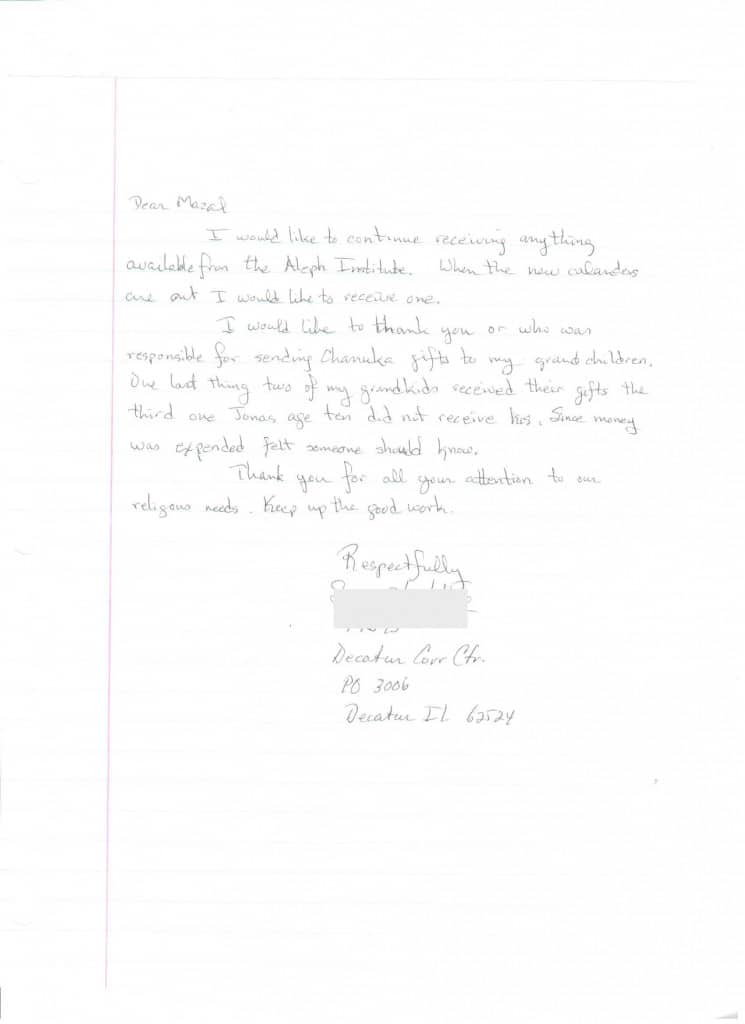 Dear Mazal
I would like to continue receiving anything
available from the Aleph Institute. When the new calanders
are out I would like to receive one.
I would like to thank you or who was
responsible for sending Chanuka gifts to my grand children.
One last thing two of my grandkids received their gifts the
third one Jonas, age ten did not receive his. Since money
was expended felt someone should know.
Thank you for all your attention to our
religous needs. Keep up the good work.
Respectfully
Decatur Corr Ctr.
PO 3006
Decatur IL 62524